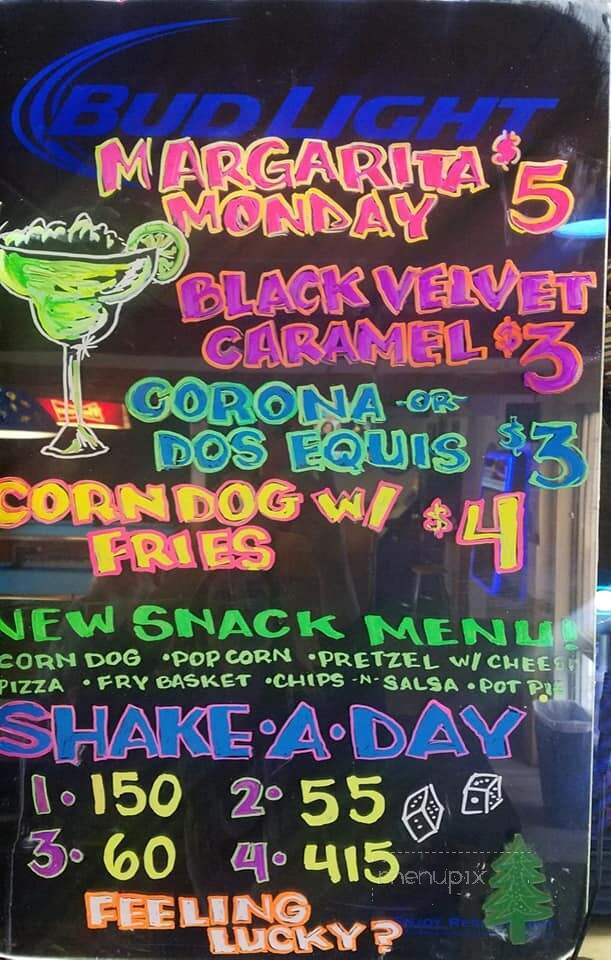 BUD LIGHT
MARGARITA $5
MONDAY
BLACK VELVET
CARAMEL $3
CORONA -OR-
DOS EQUIS $3
CORN DOG W/ $4
FRIES
NEW SNACK MENU!
CORN DOG • POPCORN • PRETZEL W/ CHEESE
PIZZA • FRY BASKET • CHIPS -N- SALSA • POT PIE
SHAKE•A•DAY
1• 150 2• 55
3• 60 4• 415
menupix
FEELING
LUCKY?